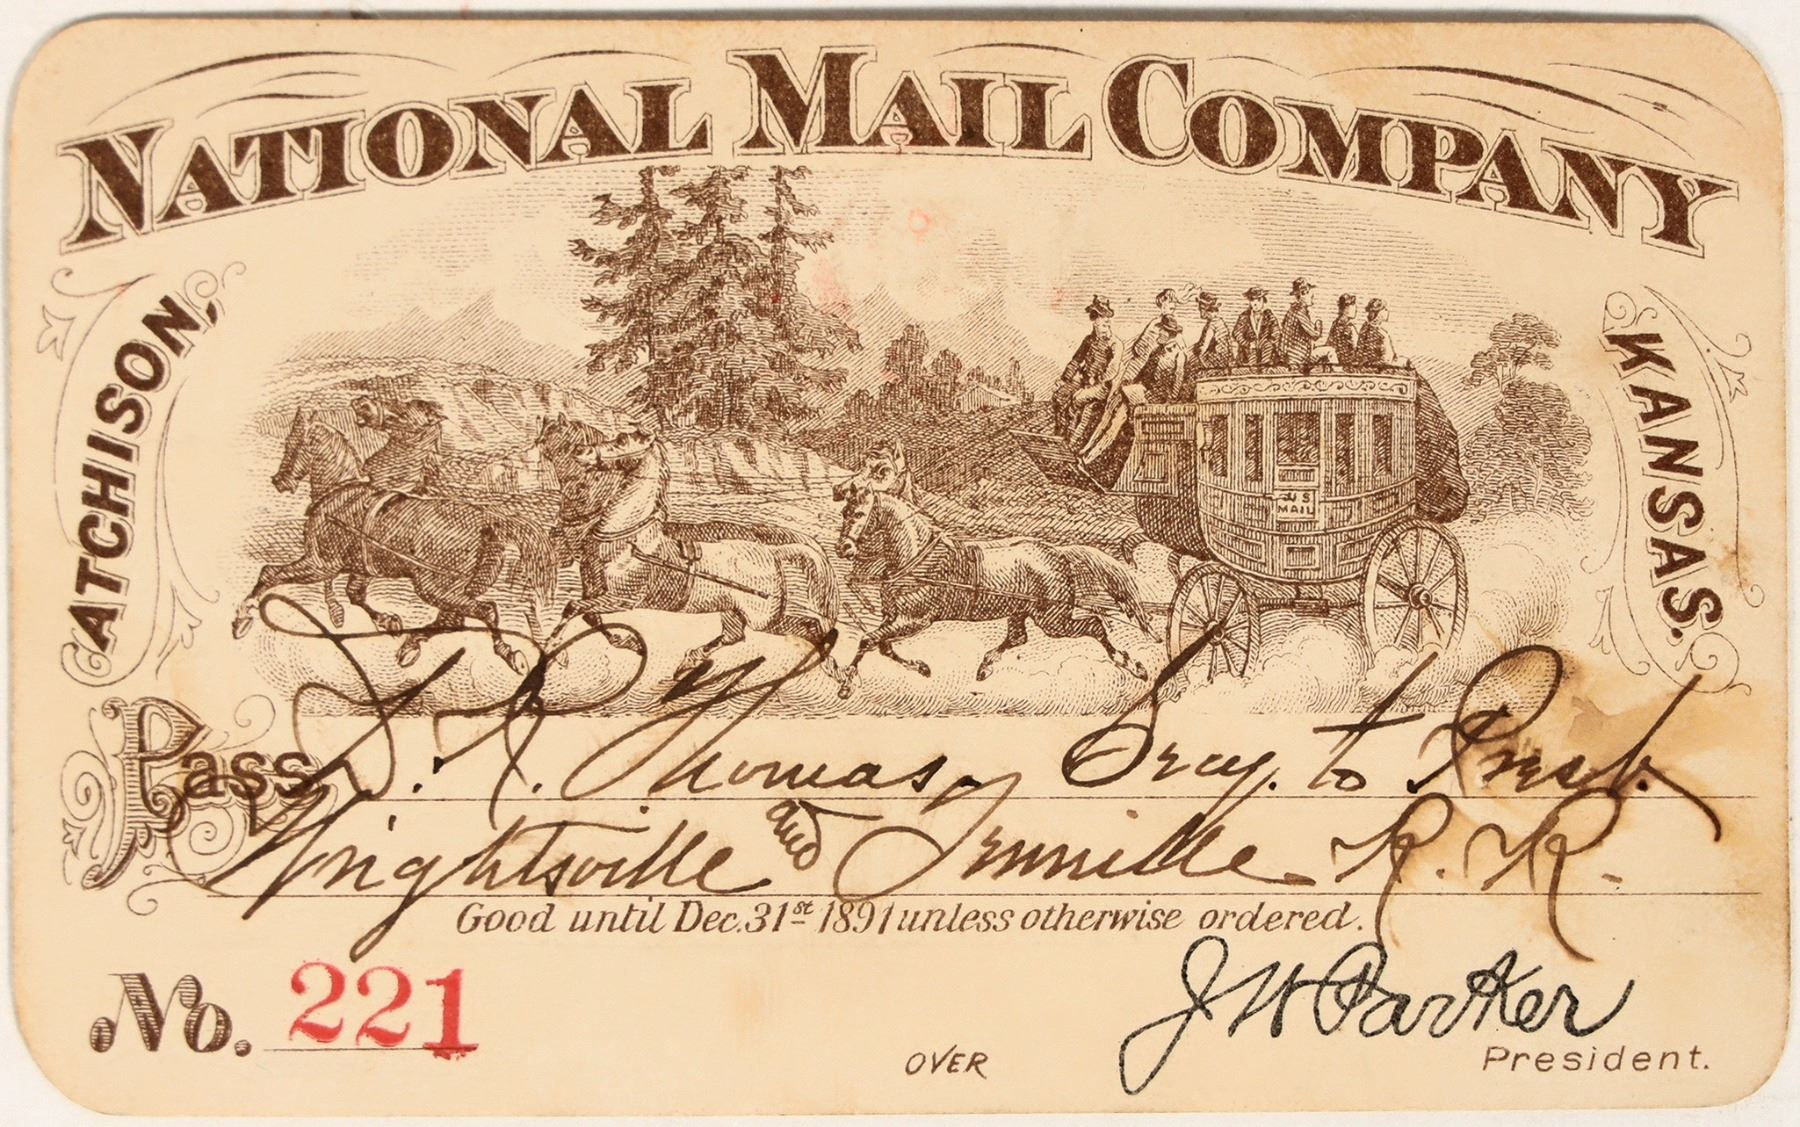 NATIONAL MAIL COMPANY
ATCHISON,
KANSAS.
U S
MAIL
Pass J. R. Thomas, Secy. to Prest.
Wrightsville and Tennille R. R.
Good until Dec. 31st 1891 unless otherwise ordered.
No. 221
J W Parker
President.
OVER